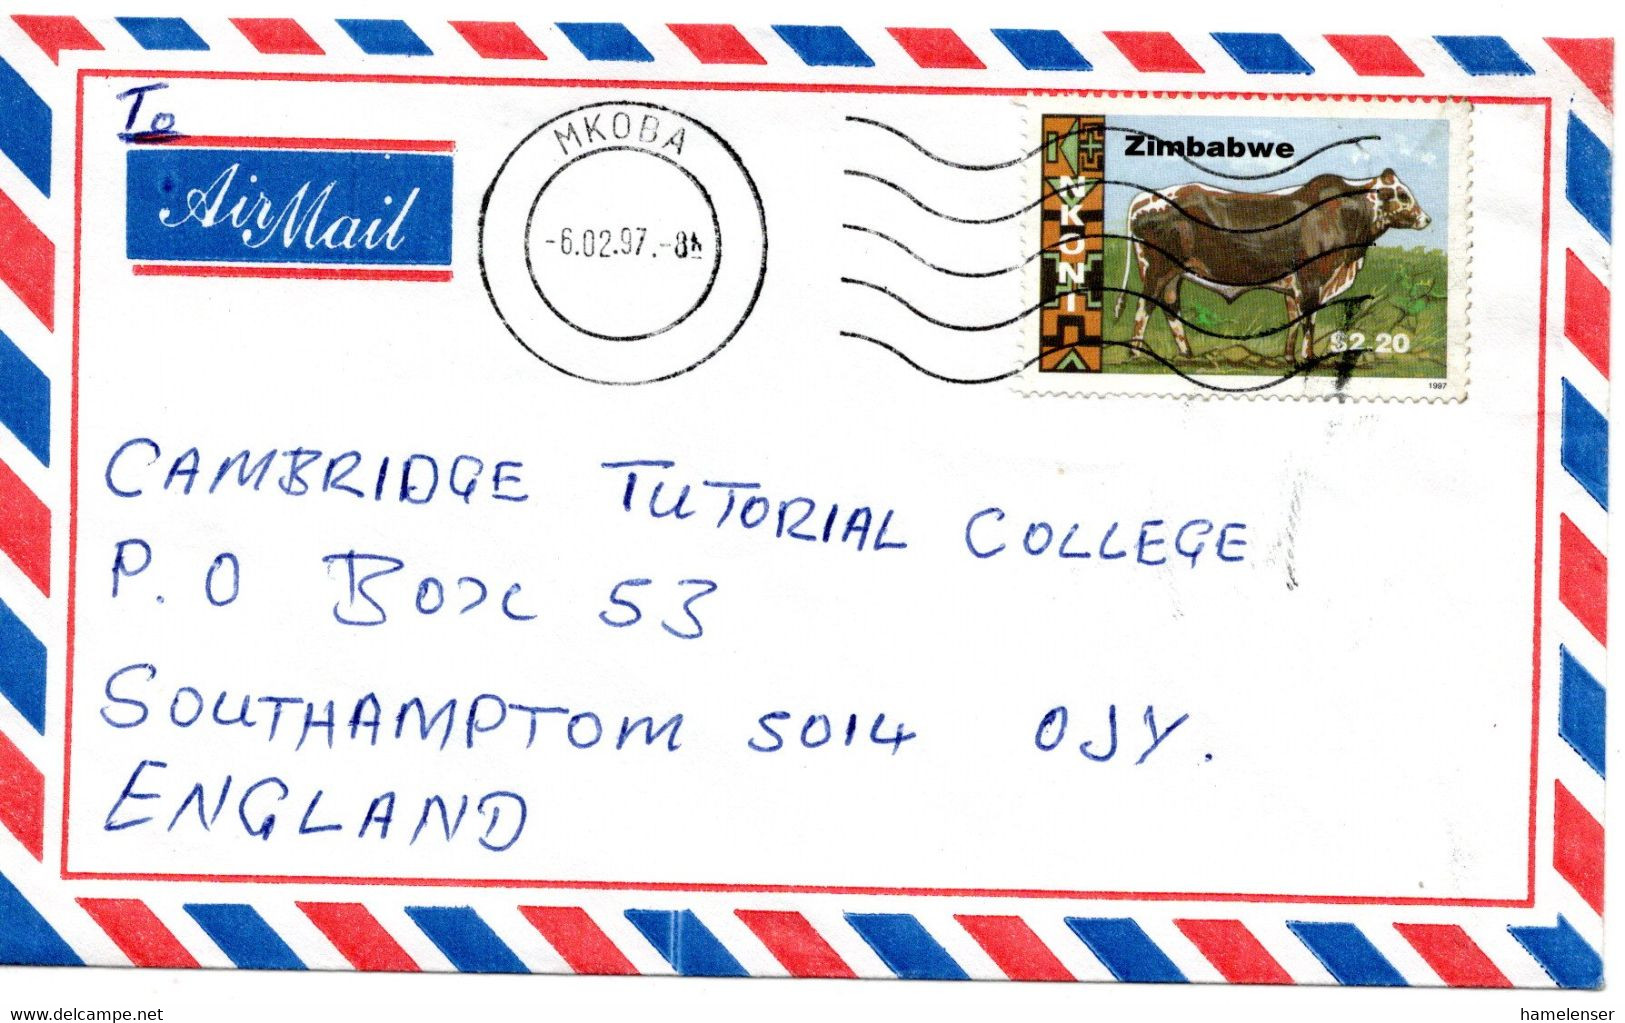 To
Air Mail
MKOBA
-6.02.97.-8
Zimbabwe
NKONI
$2.20
1997
CAMBRIDGE TUTORIAL COLLEGE
P.O BOX 53
SOUTHAMPTOM SO14 OJY.
ENGLAND
www.delcampe.net
hamelenser